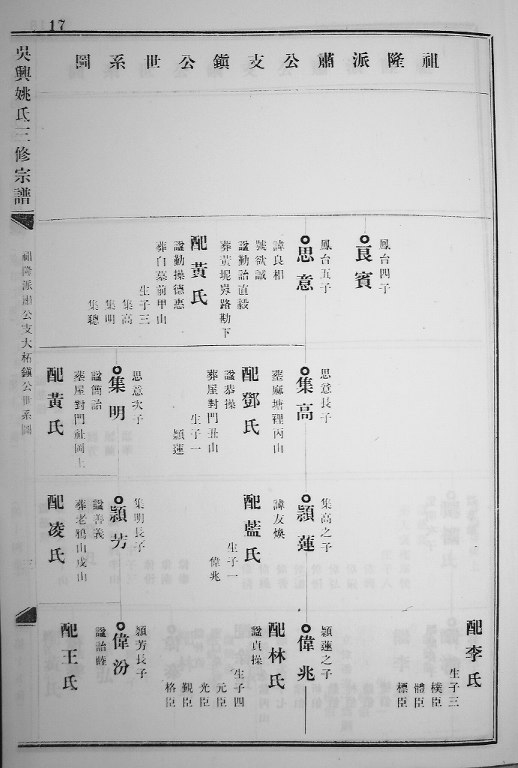 17
祖隆派蕭公支鎭公世系圖
鳳台四子
良賓
鳳台五子
思意
諱良相
號欲誠
諡勤詒直毅
葬黃坭㘭路勘下
配黃氏
諡勤操德惠
葬白墓前甲山
生子三
集高
集明
集聰
思意長子
集高
葬麻塘裡丙山
配鄧氏
諡恭操
葬屋對門丑山
生子一
潁蓮
思意次子
集明
諡簡詒
葬屋對門社岡上
配黃氏
集高之子
潁蓮
諱友煥
配藍氏
生子一
偉兆
集明長子
潁芳
諡善義
葬老鴉山戌山
配凌氏
配李氏
生子三
樸臣
體臣
標臣
潁蓮之子
偉兆
配林氏
諡貞操
生子四
元臣
光臣
覲臣
格臣
潁芳長子
偉汾
諡詒
配王氏
吳興姚氏三修宗譜
祖隆派蕭公支大柸鎭公世系圖
三